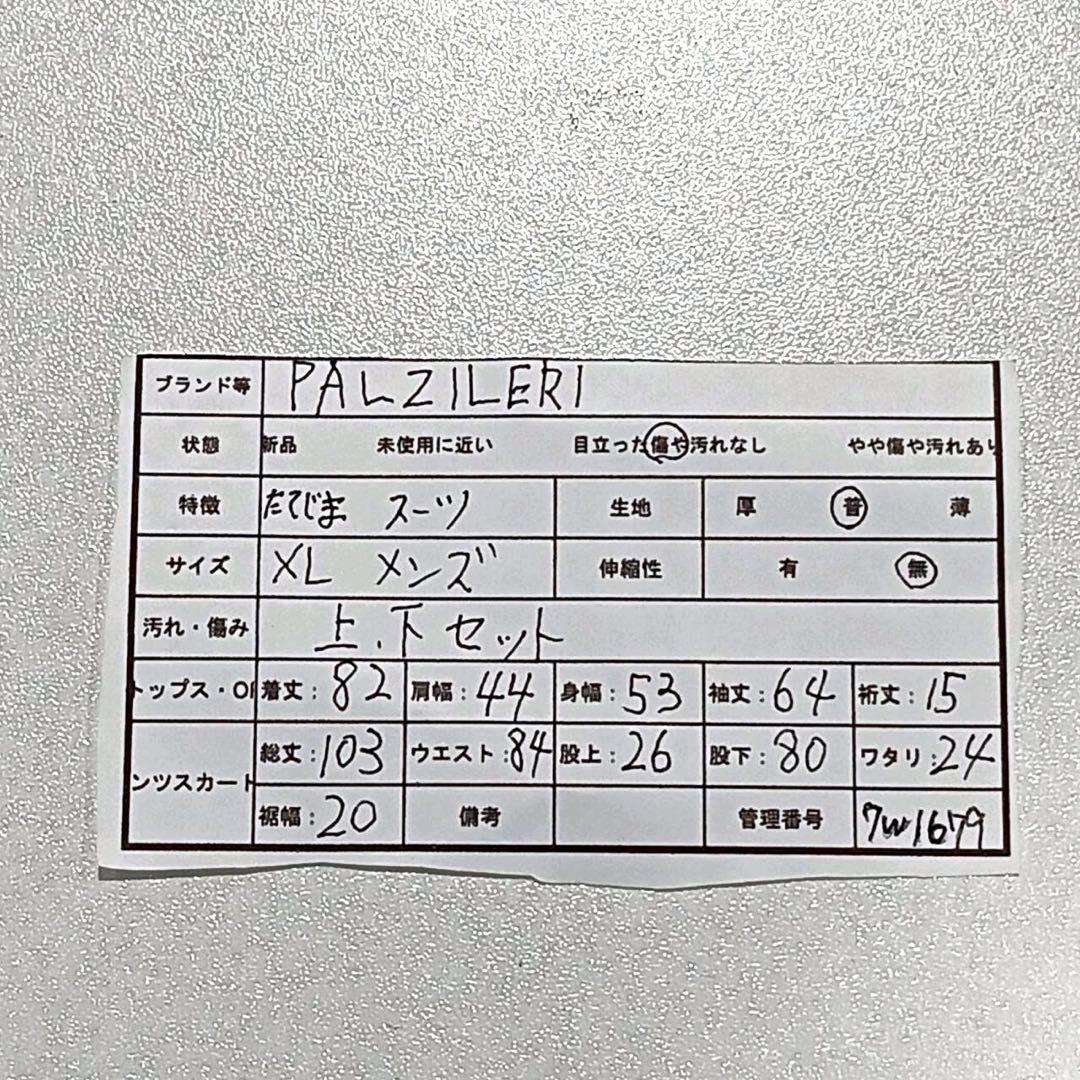 ブランド等 PALZILERI
状態 新品 未使用に近い 目立った傷や汚れなし やや傷や汚れあり
特徴 たてじま スーツ 生地 厚 普 薄
サイズ XL メンズ 伸縮性 有 無
汚れ・傷み 上.下セット
トップス・O 着丈:82 肩幅:44 身幅:53 袖丈:64 裄丈:15
ンツスカート 総丈:103 ウエスト:84 股上:26 股下:80 ワタリ:24
裾幅:20 備考 管理番号 7w1679